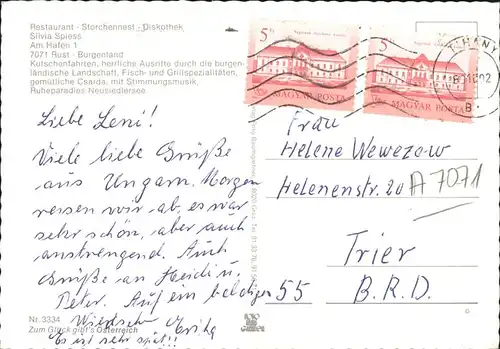 Restaurant - Storchennest - Diskothek
Silvia Spiess
Am Hafen 1
7071 Rust - Burgenland
Kutschenfahrten, herrliche Ausritte durch die burgen-
ländische Landschaft, Fisch- und Grillspezialitäten,
gemütliche Csarda, mit Stimmungsmusik,
Ruheparadies Neusiedlersee.
Liebe Leni!
Viele liebe Grüße
aus Ungarn. Morgen
reisen wir ab, es war
sehr schön, aber auch
anstrengend. Auch
Grüße an Heidi u.
Peter. Auf ein baldiges
Wiedersehen Erika
Es ist sehr spät!!
Nr. 3334
Zum Glück gibt's Österreich
5 Ft
MAGYAR POSTA
5 Ft
MAGYAR POSTA
TIHANY
Frau
Helene Wewezow
Helenenstr. 20
A 7071
55 Trier
B.R.D.